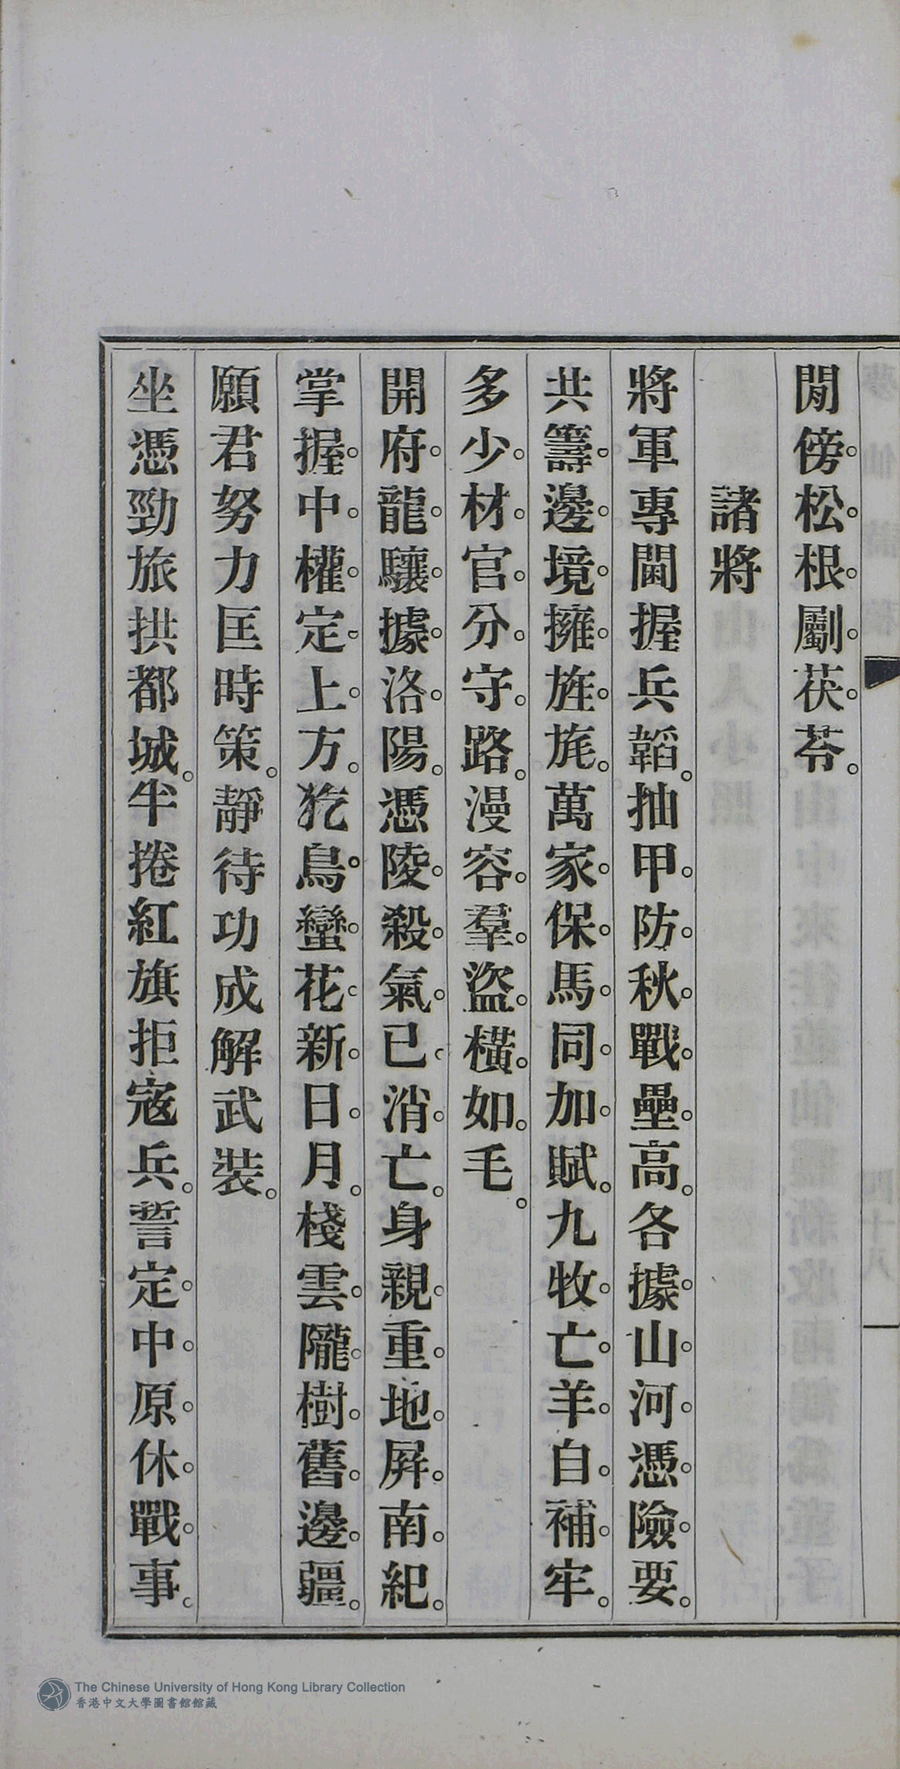 閒傍松根劚茯苓。
諸將
將軍專閫握兵韜。抽甲防秋戰壘高。各據山河憑險要。
共籌邊境擁旌旄。萬家保馬同加賦。九牧亡羊自補牢。
多少材官分守路。漫容羣盜橫如毛。
開府龍驤據洛陽。憑陵殺氣已消亡。身親重地屏南紀。
掌握中權定上方。犵鳥蠻花新日月。棧雲隴樹舊邊疆。
願君努力匡時策。靜待功成解武裝。
坐憑勁旅拱都城。半捲紅旗拒寇兵。誓定中原休戰事。
The Chinese University of Hong Kong Library Collection
香港中文大學圖書館館藏